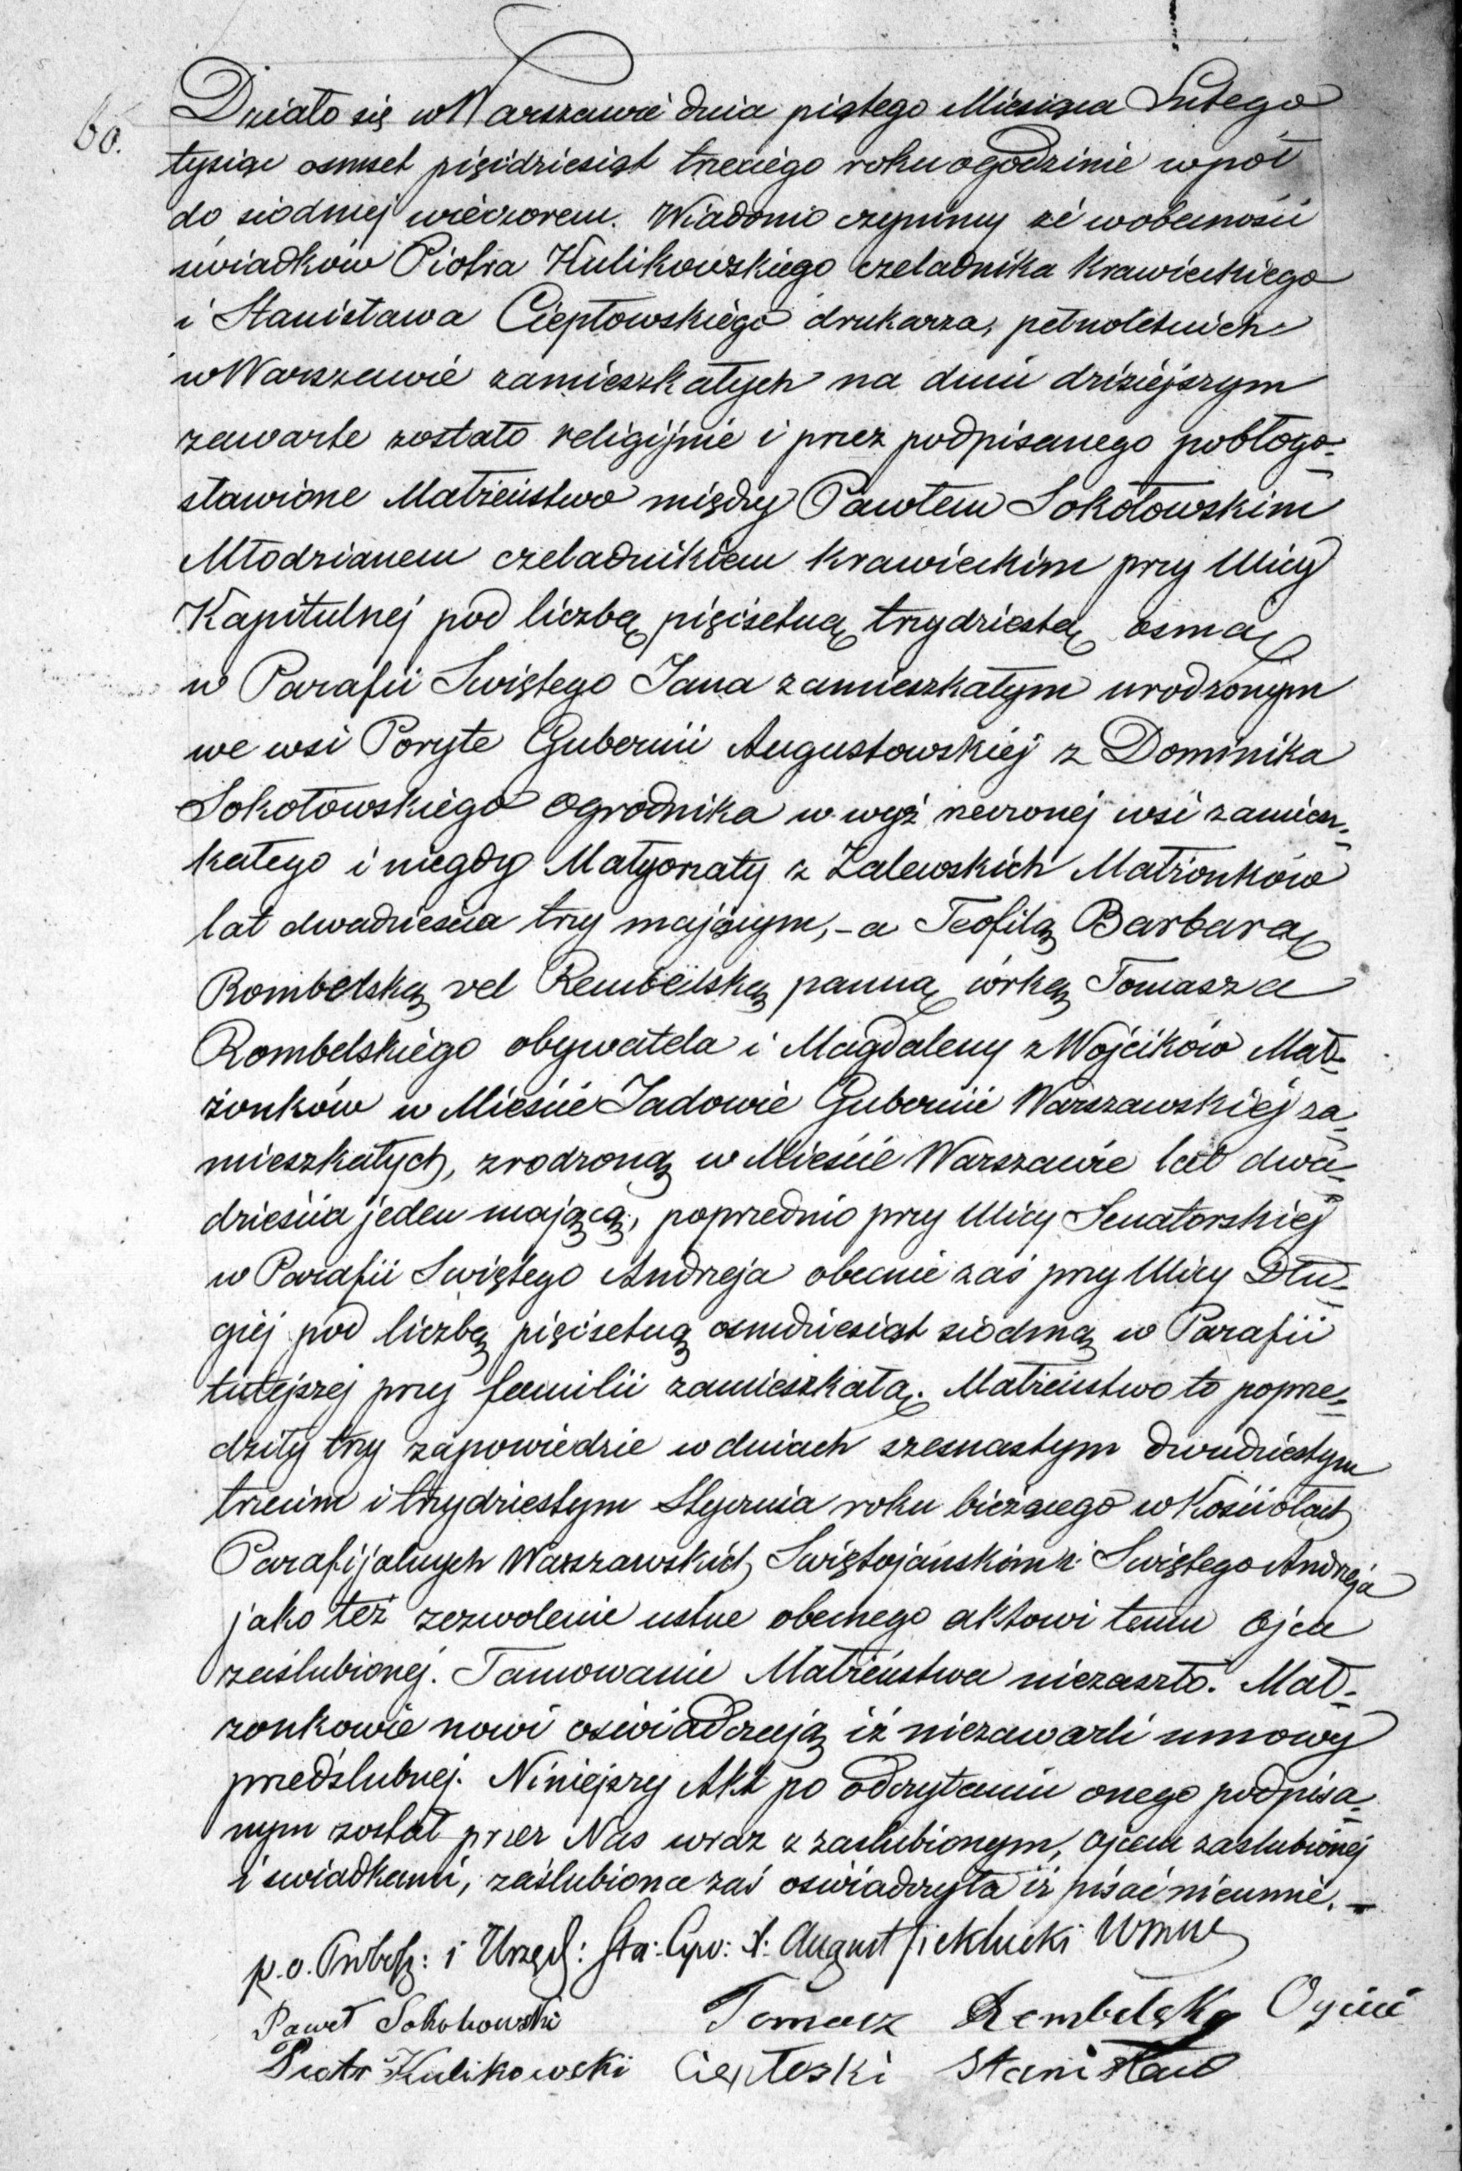 60.
Działo się w Warszawie dnia piątego Miesiąca Lutego
tysiąc ośmset pięćdziesiąt trzeciego roku o godzinie wpół
do siódmej wieczorem. Wiadomo czynimy że w obecności
świadków Piotra Kulikowskiego czeladnika krawieckiego
i Stanisława Ciepłowskiego drukarza, pełnoletnich
w Warszawie zamieszkałych na dniu dzisiejszym
zawarte zostało religijnie i przez podpisanego pobłogo-
sławione Małżeństwo między Pawłem Sokołowskim
Młodzianem czeladnikiem krawieckim przy Ulicy
Kapitulnej pod liczbą pięćsetną trzydziestą osmą
w Parafii Świętego Jana zamieszkałym urodzonym
we wsi Poryte Gubernii Augustowskiej z Dominika
Sokołowskiego ogrodnika w wyż rzeczonej wsi zamiesz-
kałego i niegdy Małgorzaty z Zalewskich Małżonków
lat dwadzieścia trzy mającym, - a Teofilą Barbarą
Rombelską vel Rembelską panną córką Tomasza
Rombelskiego obywatela i Magdaleny z Wójcików Mał-
żonków w Mieście Jadowie Gubernii Warszawskiej za-
mieszkałych, zrodzoną w Mieście Warszawie lat dwa-
dzieścia jeden mającą, poprzednio przy Ulicy Senatorskiej
w Parafii Świętego Andrzeja obecnie zaś przy Ulicy Dłu-
giej pod liczbą pięćsetną osmdziesiąt siódmą w Parafii
tutejszej przy familii zamieszkałą. Małżeństwo to poprze-
dziły trzy zapowiedzie w dniach szesnastym dwudziestym
trzecim i trzydziestym Stycznia roku bieżącego w Kościołach
Parafijalnych Warszawskich Świętojańskim i Świętego Andrzeja
jako też zezwolenie ustne obecnego aktowi temu Ojca
zaślubionej. Tamowanie Małżeństwa niezaszło. Mał-
żonkowie nowi oświadczają iż niezawarli umowy
przedślubnej. Niniejszy Akt po odczytaniu onego podpisa-
nym został przez Nas wraz z zaślubionym, ojcem zaślubionej
i świadkami, zaślubiona zaś oświadczyła iż pisać nieumie. -
p. o. Probosz: i Urzęd: Sta: Cyw: X. August
Paweł Sokołowski Tomasz Rembelsky Oyciec
Piotr Kulikowski Ciepłoski Stanisław